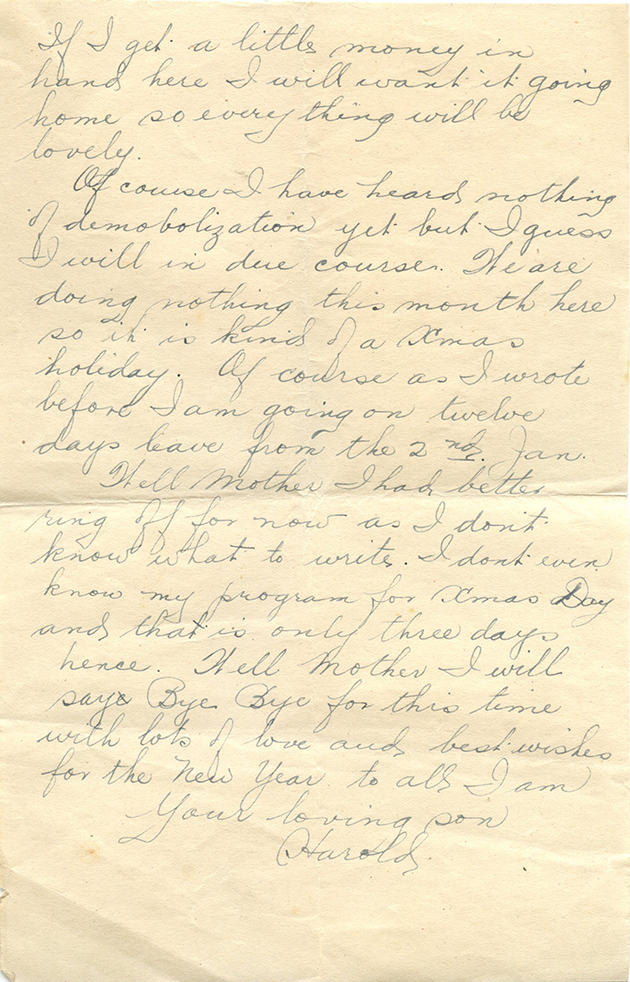 If I get a little money in
hand here I will want it going
home so everything will be
lovely.
Of course I have heard nothing
of demobolization yet but I guess
I will in due course. We are
doing nothing this month here
so it is kind of a Xmas
holiday. Of course as I wrote
before I am going on twelve
days leave from the 2nd. Jan.
Well Mother I had better
ring off for now as I don't
know what to write. I dont even
know my program for Xmas Day
and that is only three days
hence. Well Mother I will
say Bye Bye for this time
with lots of love and best wishes
for the New Year to all I am
Your loving son
Harold.